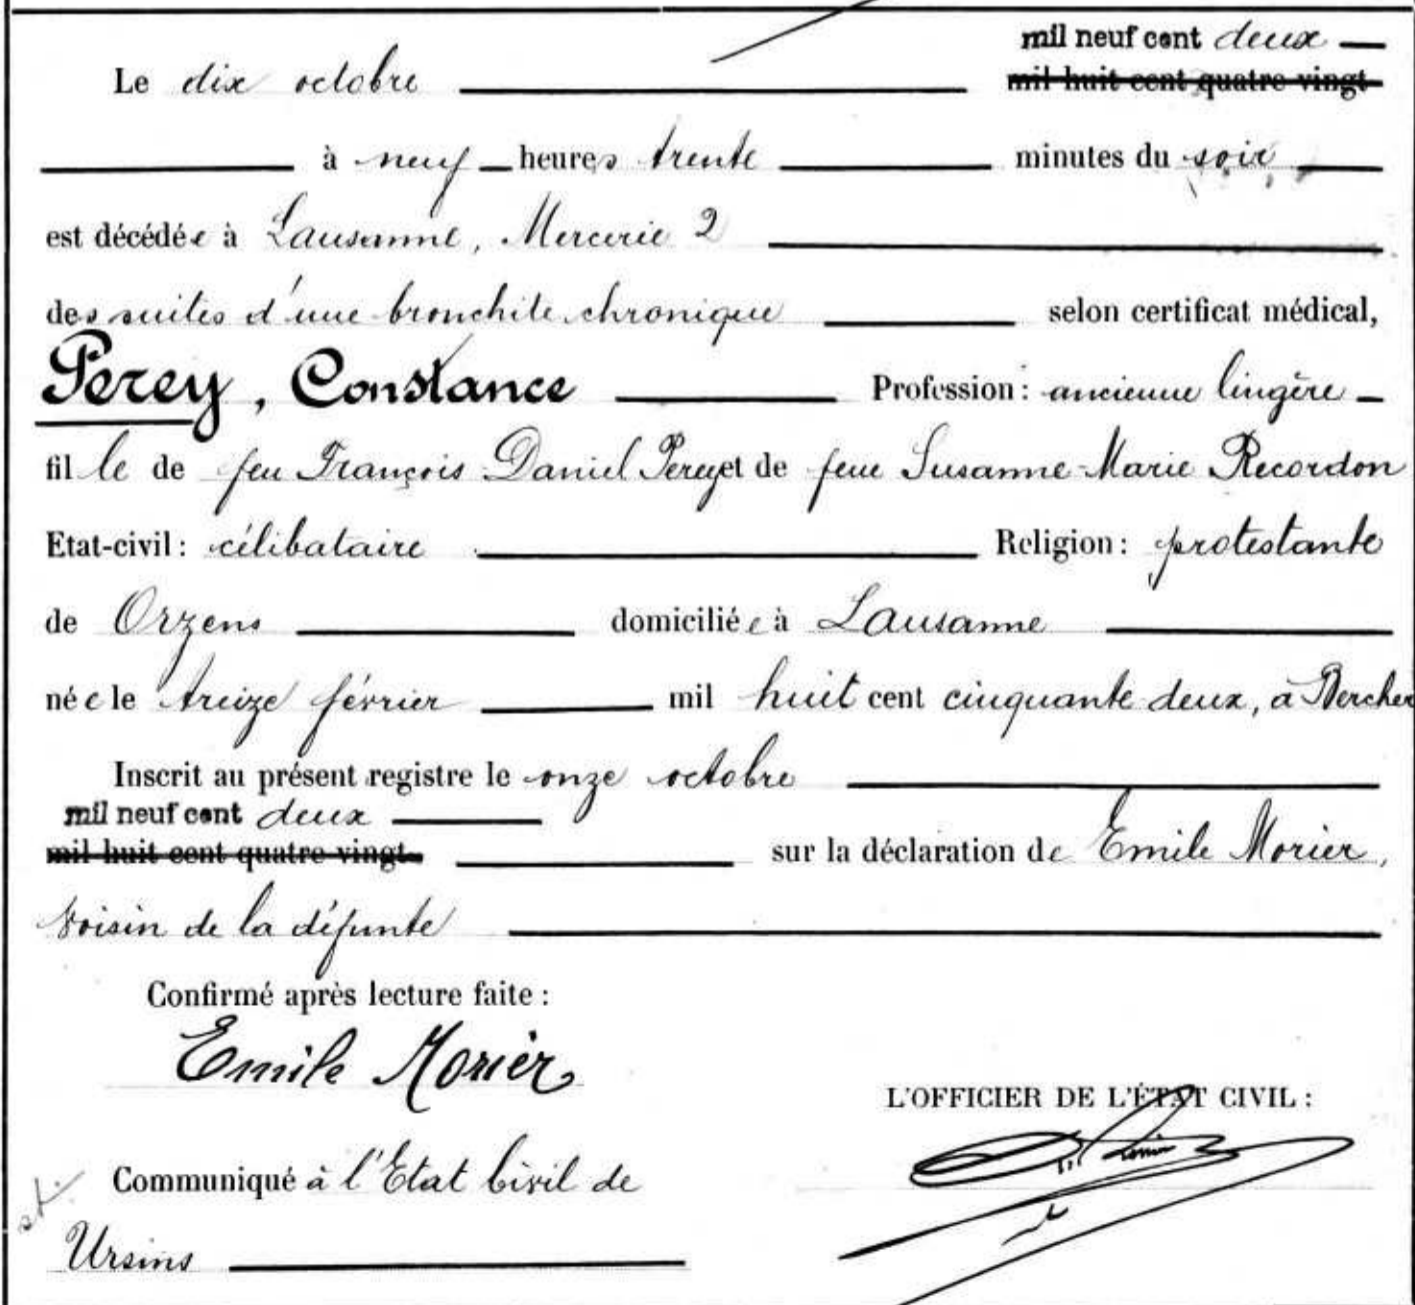 mil neuf cent deux
Le dix octobre mil huit cent quatre vingt
à neuf heures trente minutes du soir
est décédée à Lausanne, Mercerie 2
des suites d'une bronchite chronique selon certificat médical,
Perey, Constance Profession : ancienne lingère
fille de feu François Daniel Perey et de feue Susanne Marie Recordon
Etat-civil : célibataire Religion : protestante
de Orzens domiciliée à Lausanne
née le treize février mil huit cent cinquante deux, à Bercher
Inscrit au présent registre le onze octobre
mil neuf cent deux
mil huit cent quatre vingt sur la déclaration de Emile Morier,
voisin de la défunte
Confirmé après lecture faite :
Emile Morier
L'OFFICIER DE L'ÉTAT CIVIL :
Communiqué à l'Etat Civil de
Ursins